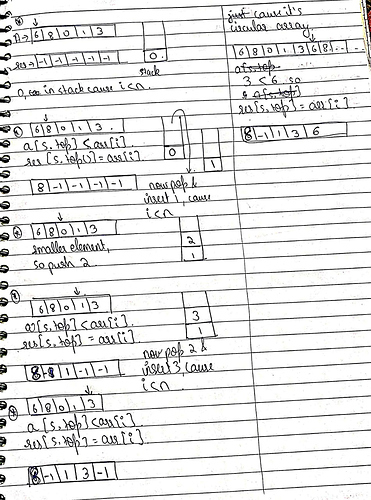 n → 6 8 0 1 3
res → -1 -1 -1 -1 -1
0
stack
in stack cause i<n.
6 8 0 1 3
a[s.top] < arr[i].
res[s.top()] = arr[i]
0
1
8 -1 -1 -1 -1
now pop &
insert 1, cause
i<n
6 8 0 1 3
smaller element,
so push 2
2
1
6 8 0 1 3
a[s.top] < arr[i].
res[s.top] = arr[i].
3
1
8 -1 1 -1 -1
now pop 2 &
insert 3, cause
i<n.
6 8 0 1 3
a[s.top] < arr[i].
res[s.top] = arr[i].
8 -1 1 3 -1
just cause it's
circular array
6 8 0 1 3 6 8 ...
a[s.top
3 < 6 so
a[s.top]
res[s.top] = arr[i].
8 -1 1 3 6